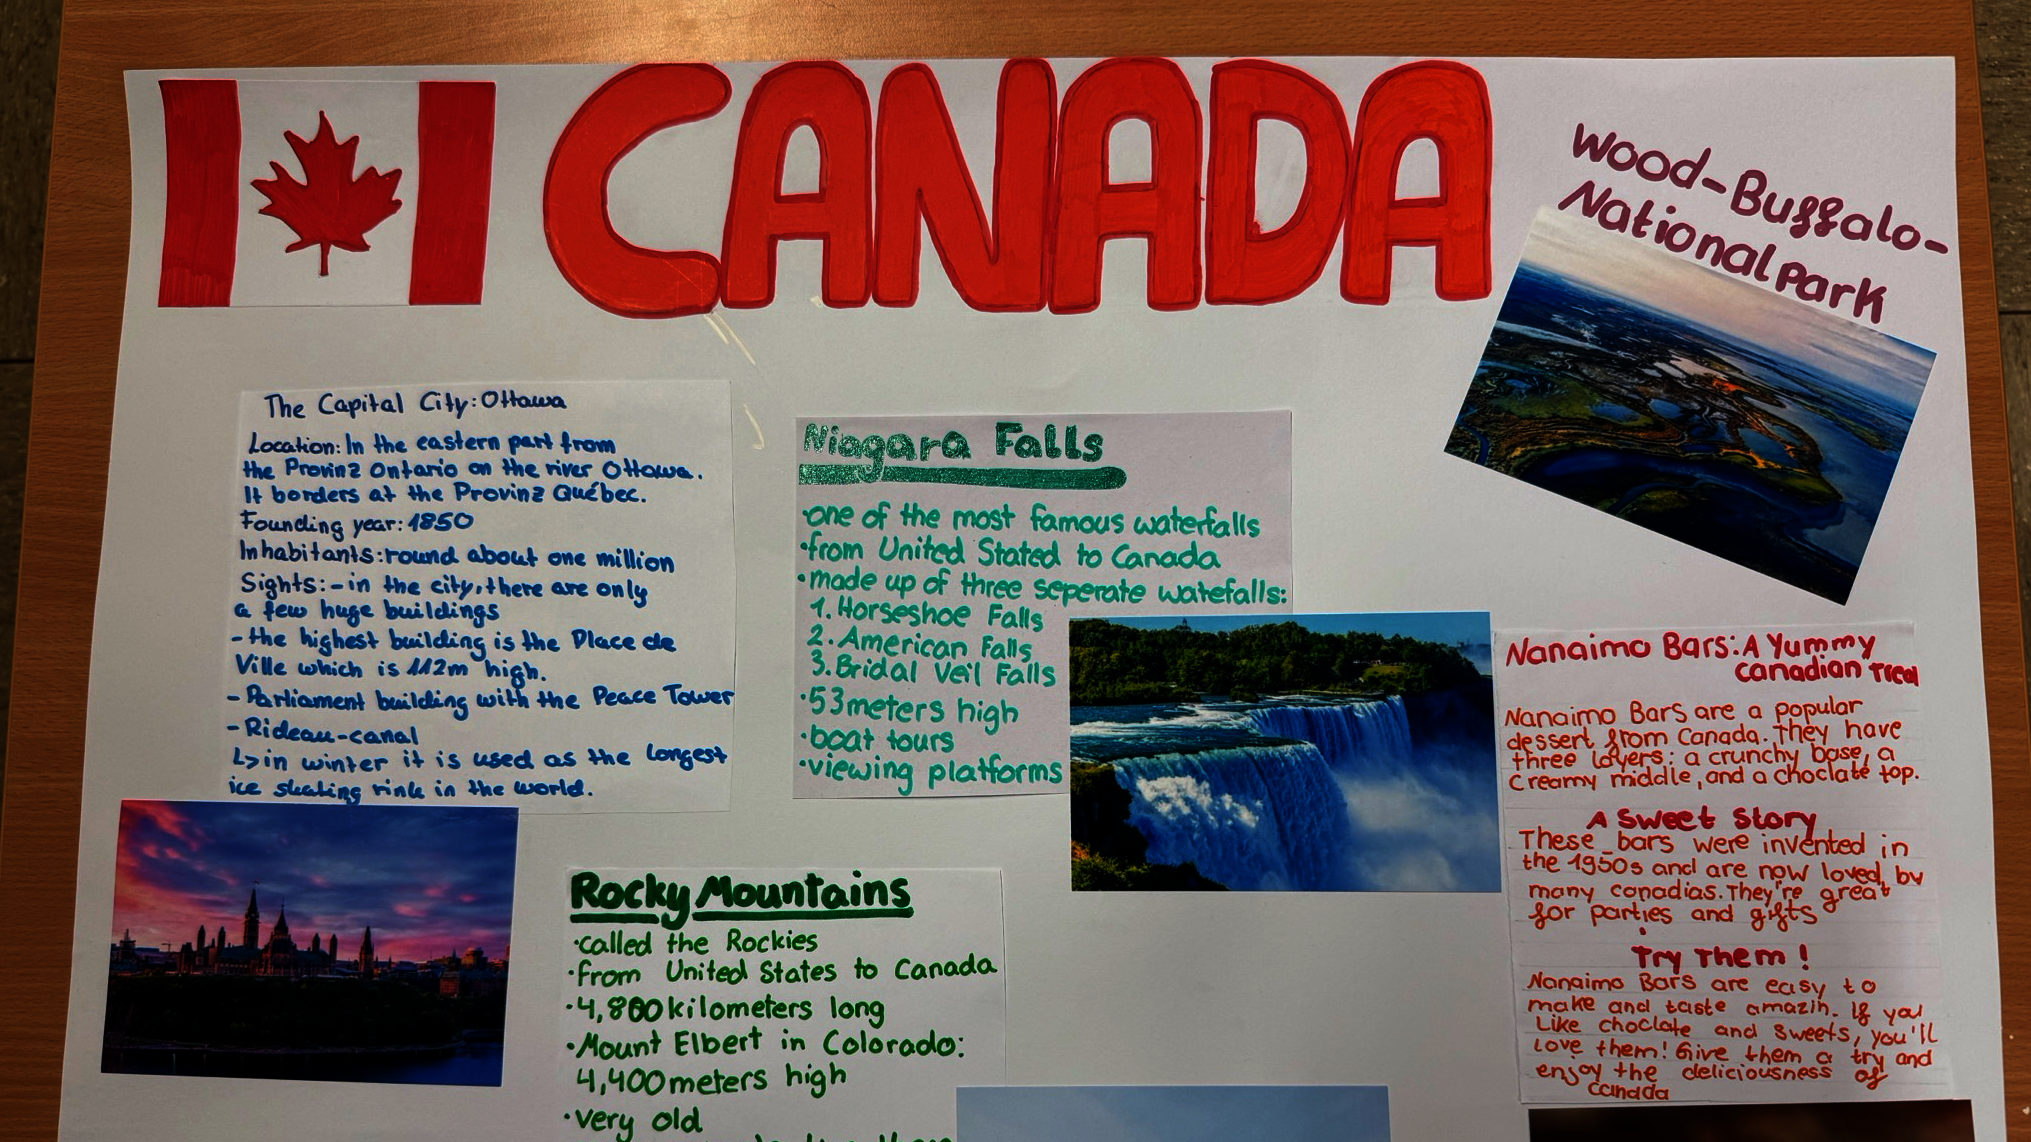 CANADA
Wood-Buffalo-
National Park
The Capital City: Ottawa
Location: In the eastern part from
the Provinz Ontario on the river Ottawa.
It borders at the Provinz Québec.
Founding year: 1850
Inhabitants: round about one million
Sights: - in the city, there are only
a few huge buildings
- the highest building is the Place de
Ville which is 112m high.
- Parliament building with the Peace Tower
- Rideau-canal
↳ in winter it is used as the longest
ice skating rink in the world.
Niagara Falls
•one of the most famous waterfalls
•from United Stated to Canada
•made up of three seperate watefalls:
1. Horseshoe Falls
2. American Falls
3. Bridal Veil Falls
•53meters high
•boat tours
•viewing platforms
Rocky Mountains
•called the Rockies
•from United States to Canada
•4,800kilometers long
•Mount Elbert in Colorado:
4,400meters high
•very old
Nanaimo Bars: A Yummy
Canadian Treat
Nanaimo Bars are a popular
dessert from Canada. They have
three layers: a crunchy base, a
creamy middle, and a choclate top.
A Sweet Story
These bars were invented in
the 1950s and are now loved by
many canadias. They're great
for parties and gifts
Try Them!
Nanaimo Bars are easy to
make and taste amazin. If you
Like choclate and sweets, you'll
love them! Give them a try and
enjoy the deliciousness of
Canada